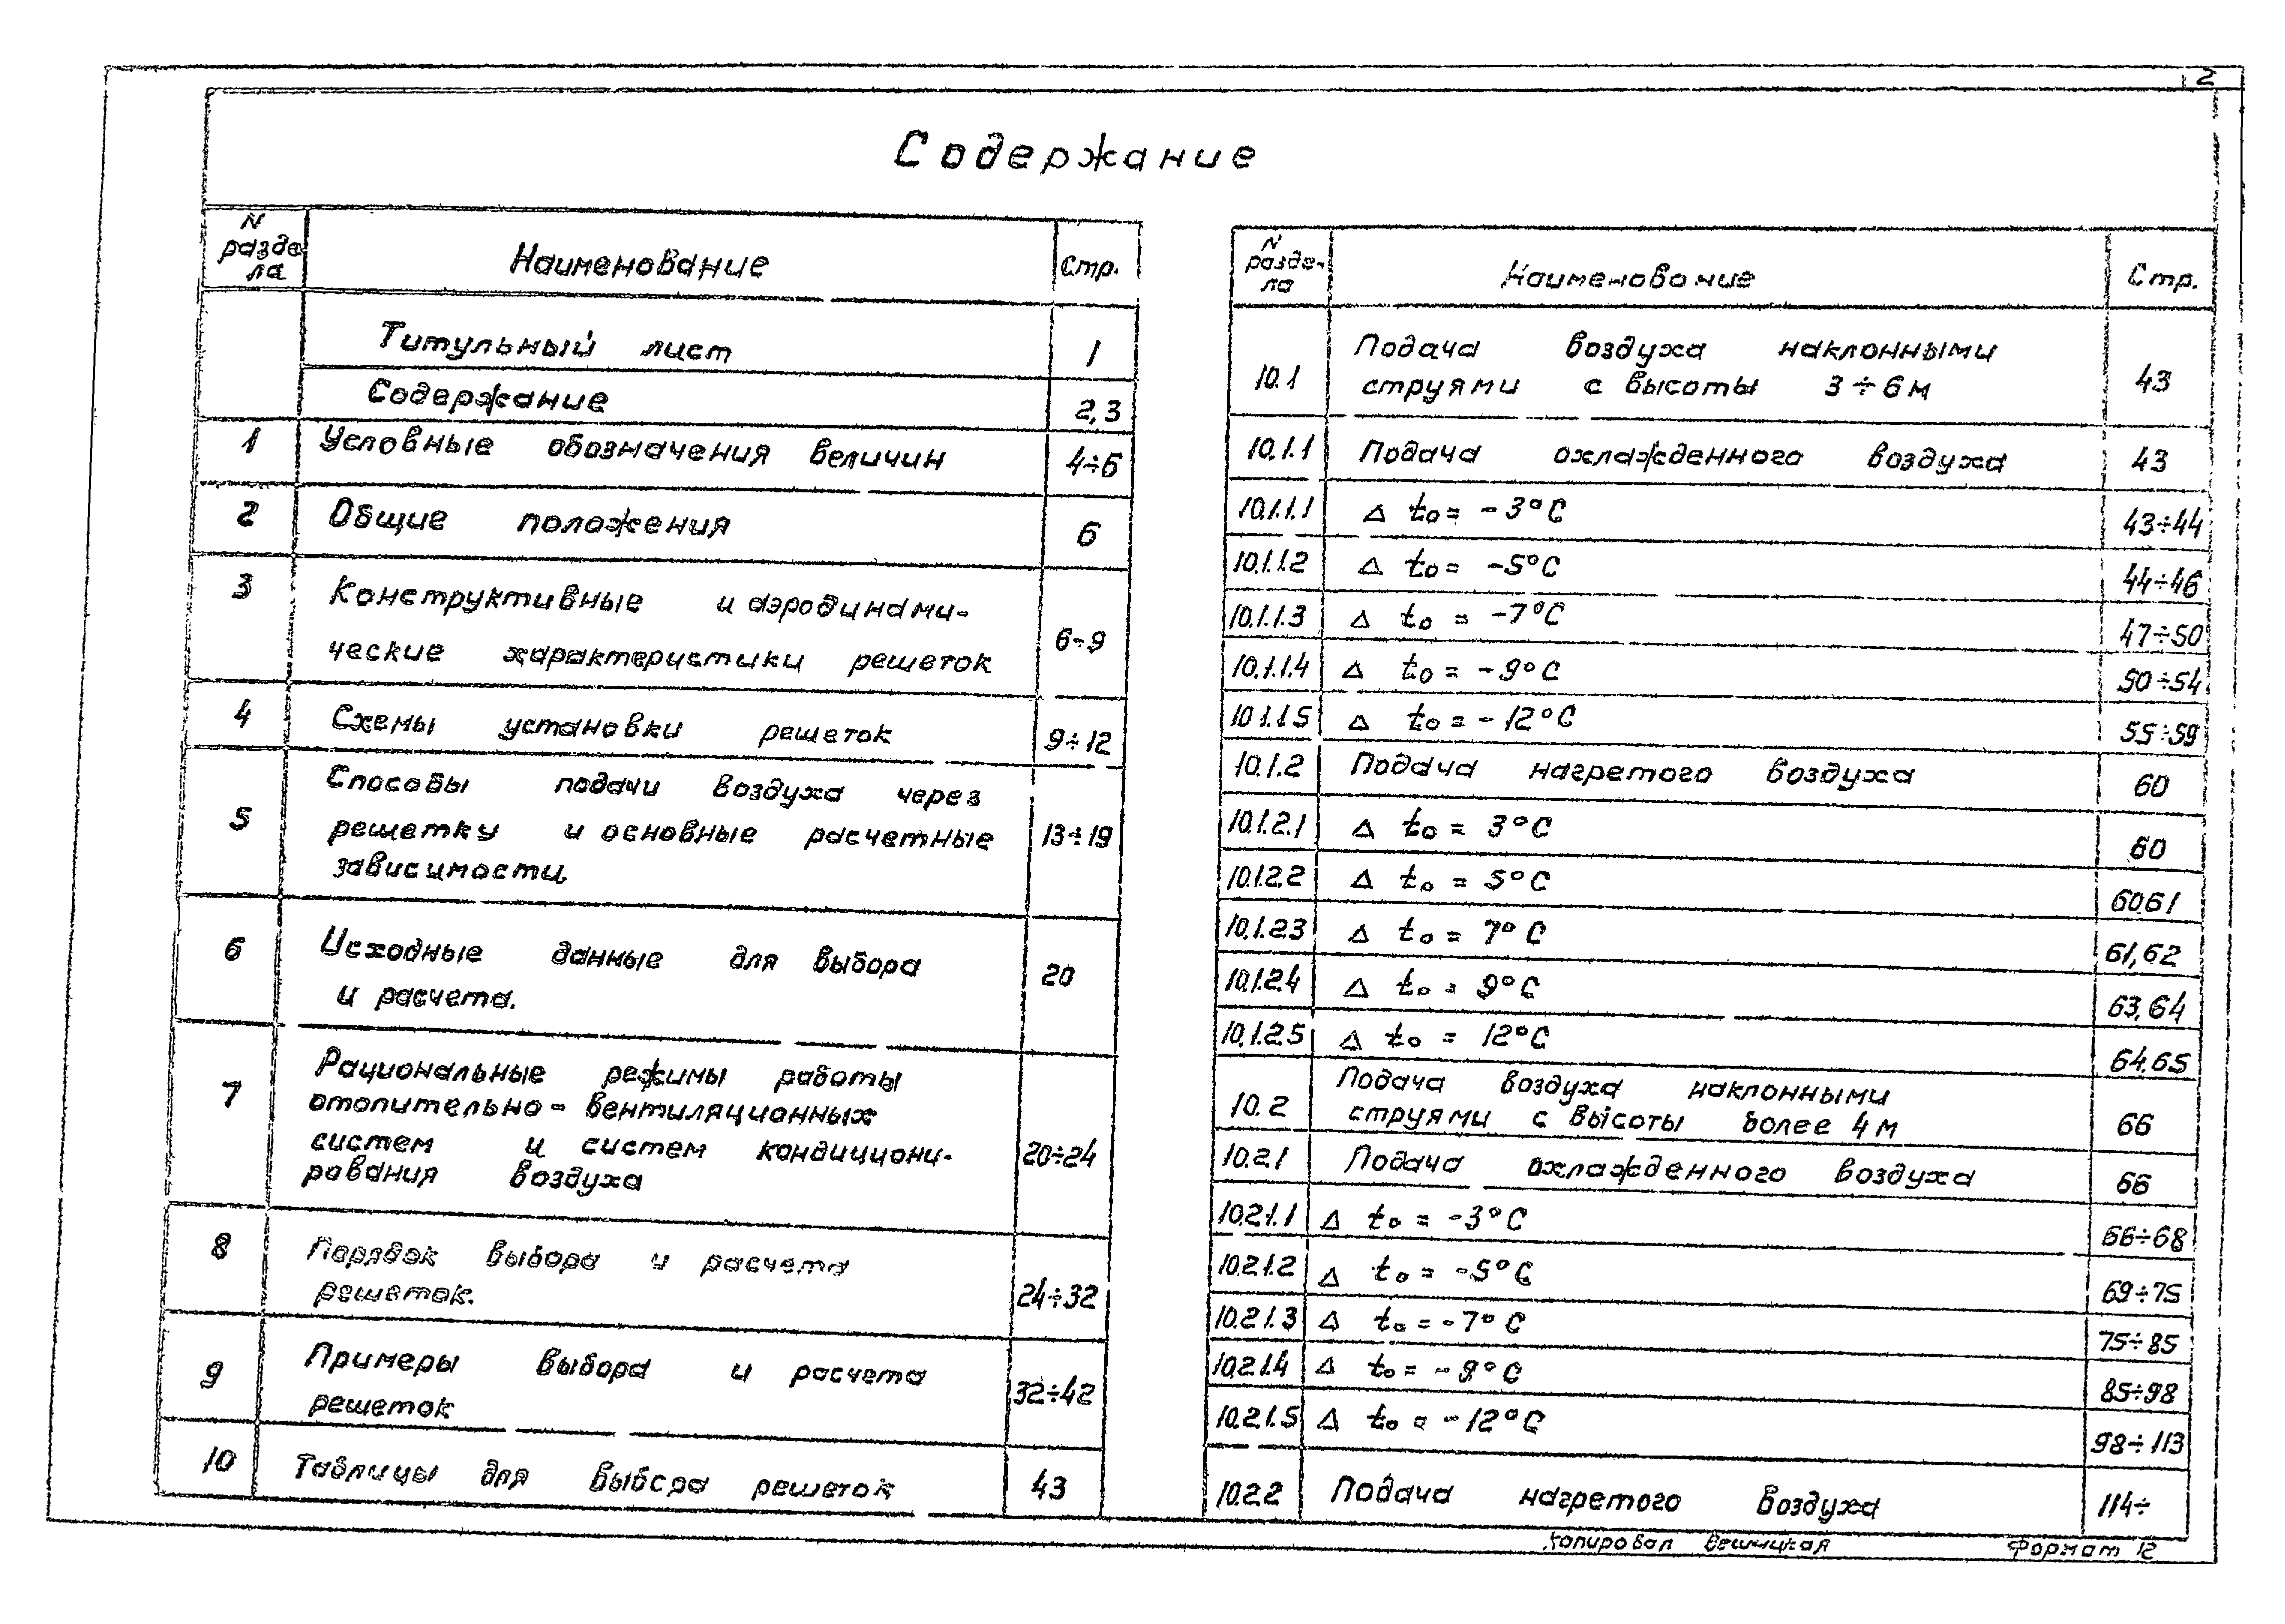 2
Содержание
N
разде
ла
Наименование
Стр.
Титульный лист
1
Содержание
2,3
1
Условные обозначения величин
4÷6
2
Общие положения
6
3
Конструктивные и аэродинами-
ческие характеристики решеток
6÷9
4
Схемы установки решеток
9÷12
5
Способы подачи воздуха через
решетку и основные расчетные
зависимости.
13÷19
6
Исходные данные для выбора
и расчета.
20
7
Рациональные режимы работы
отопительно-вентиляционных
систем и систем кондициони-
рования воздуха
20÷24
8
Порядок выбора и расчета
решеток.
24÷32
9
Примеры выбора и расчета
решеток
32÷42
10
Таблицы для выбора решеток
43
N
разде-
ла
Наименование
Стр.
10.1
Подача воздуха наклонными
струями с высоты 3÷6м
43
10.1.1
Подача охлажденного воздуха
43
10.1.1.1
Δ to = -3°C
43÷44
10.1.1.2
Δ to = -5°C
44÷46
10.1.1.3
Δ to = -7°C
47÷50
10.1.1.4
Δ to = -9°C
50÷54
10.1.1.5
Δ to = -12°C
55÷59
10.1.2
Подача нагретого воздуха
60
10.1.2.1
Δ to = 3°C
60
10.1.2.2
Δ to = 5°C
60,61
10.1.2.3
Δ to = 7°C
61,62
10.1.2.4
Δ to = 9°C
63,64
10.1.2.5
Δ to = 12°C
64,65
10.2
Подача воздуха наклонными
струями с высоты более 4м
66
10.2.1
Подача охлажденного воздуха
66
10.2.1.1
Δ to = -3°C
66÷68
10.2.1.2
Δ to = -5°C
69÷75
10.2.1.3
Δ to = -7°C
75÷85
10.2.1.4
Δ to = -9°C
85÷98
10.2.1.5
Δ to = -12°C
98÷113
10.2.2
Подача нагретого воздуха
114÷
Копировал
Формат 12